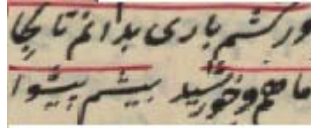 ور کشم باری بدانم تا کجا
ماهم و خورشید پیشم پیشوا